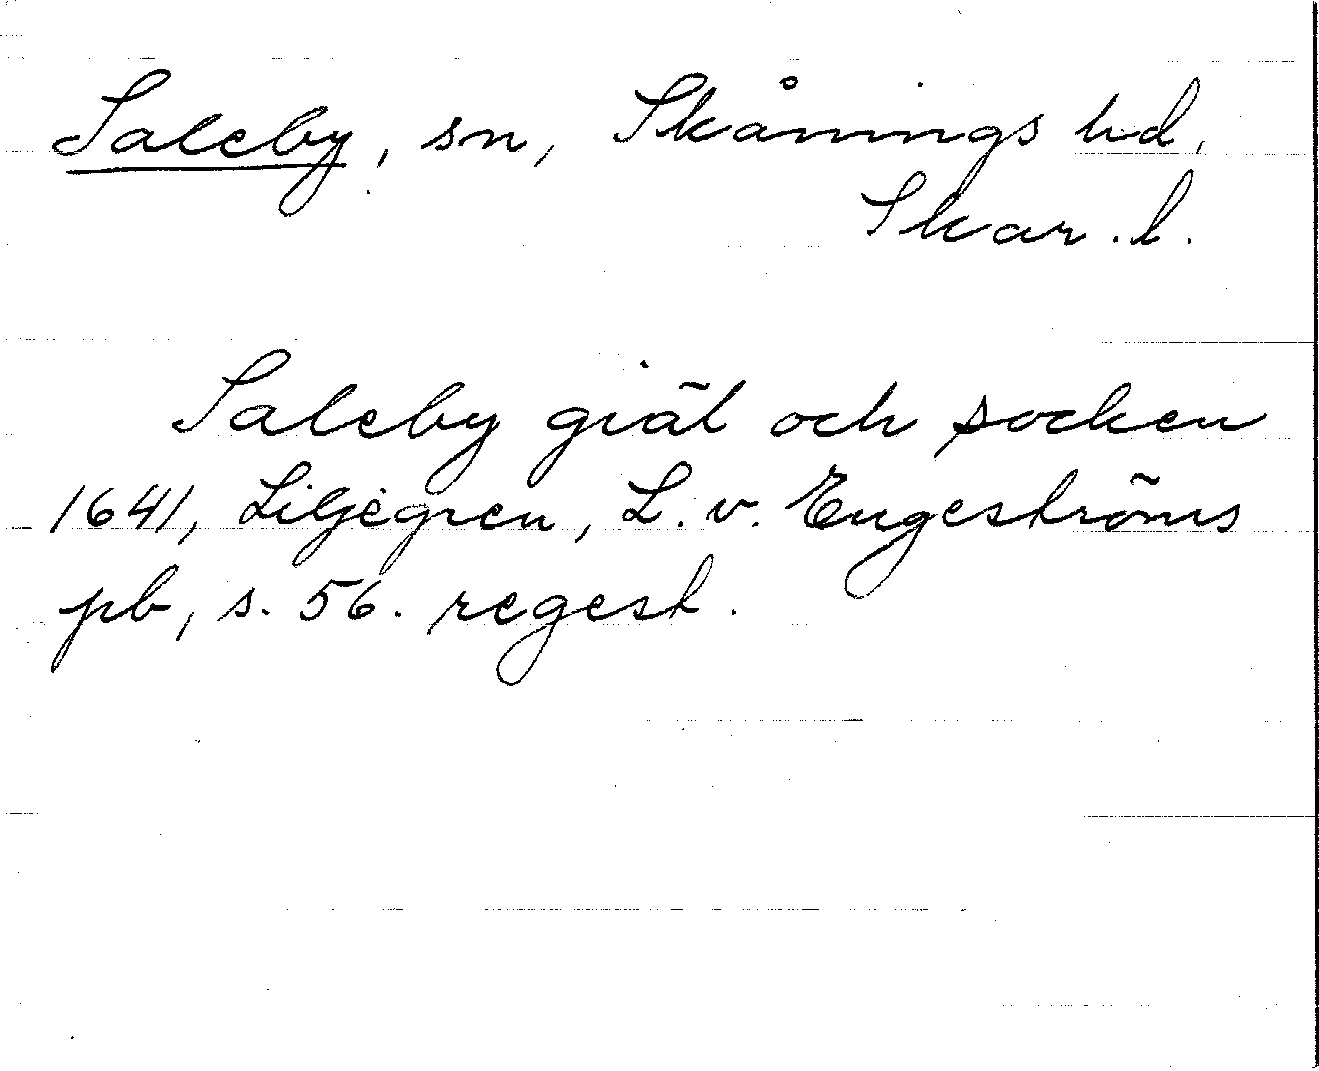 Saleby, sn, Skånings hd,
Skar. l.
Saleby giäl och socken
1641, Liljegren, L. v. Engeströms
pb, s. 56. regest.